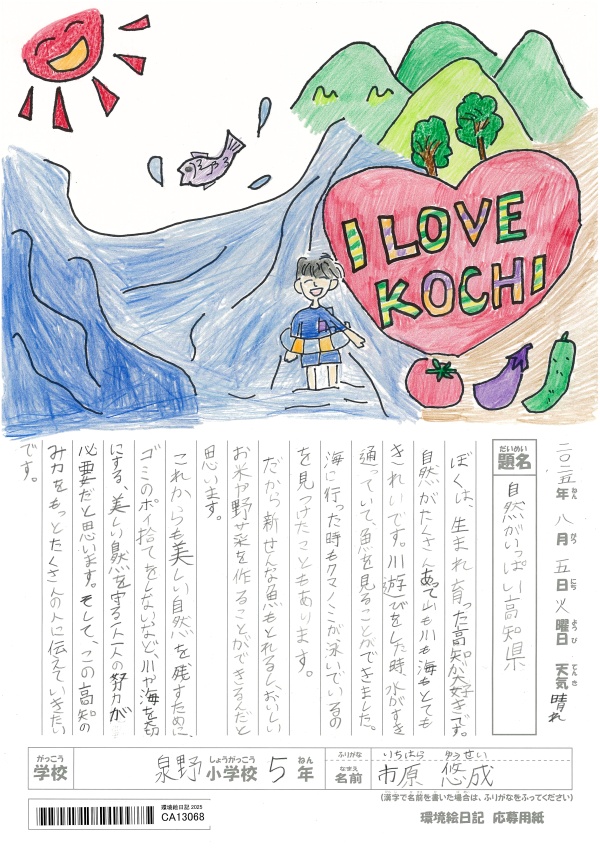 I LOVE
KOCHI
二〇二五年 八月 五日 火曜日 天気 晴れ
ねん がつ にち ようび てんき
だいめい
題名 自然がいっぱい高知県
ぼくは、生まれ育った高知が大好きです。
自然がたくさんあって山も川も海もとても
きれいです。川遊びをした時、水がすき
通っていて、魚を見ることができました。
海に行った時もクマノミが泳いでいるの
を見つけたこともあります。
だから新せんな魚もとれるし、おいしい
お米や野菜を作ることができるんだと
思います。
これからも美しい自然を残すために、
ゴミのポイ捨てをしないなど、川や海を大切
にする、美しい自然を守る一人一人の努力が
必要だと思います。そして、この高知の
みカをもっとたくさんの人に伝えていきたい
です。
がっこう しょうがっこう ねん
学校 泉野小学校 5年
ふりがな いちはら ゆうせい
なまえ
名前 市原 悠成
(漢字で名前を書いた場合は、ふりがなをふってください)
環境絵日記 2025
CA13068
環境絵日記 応募用紙